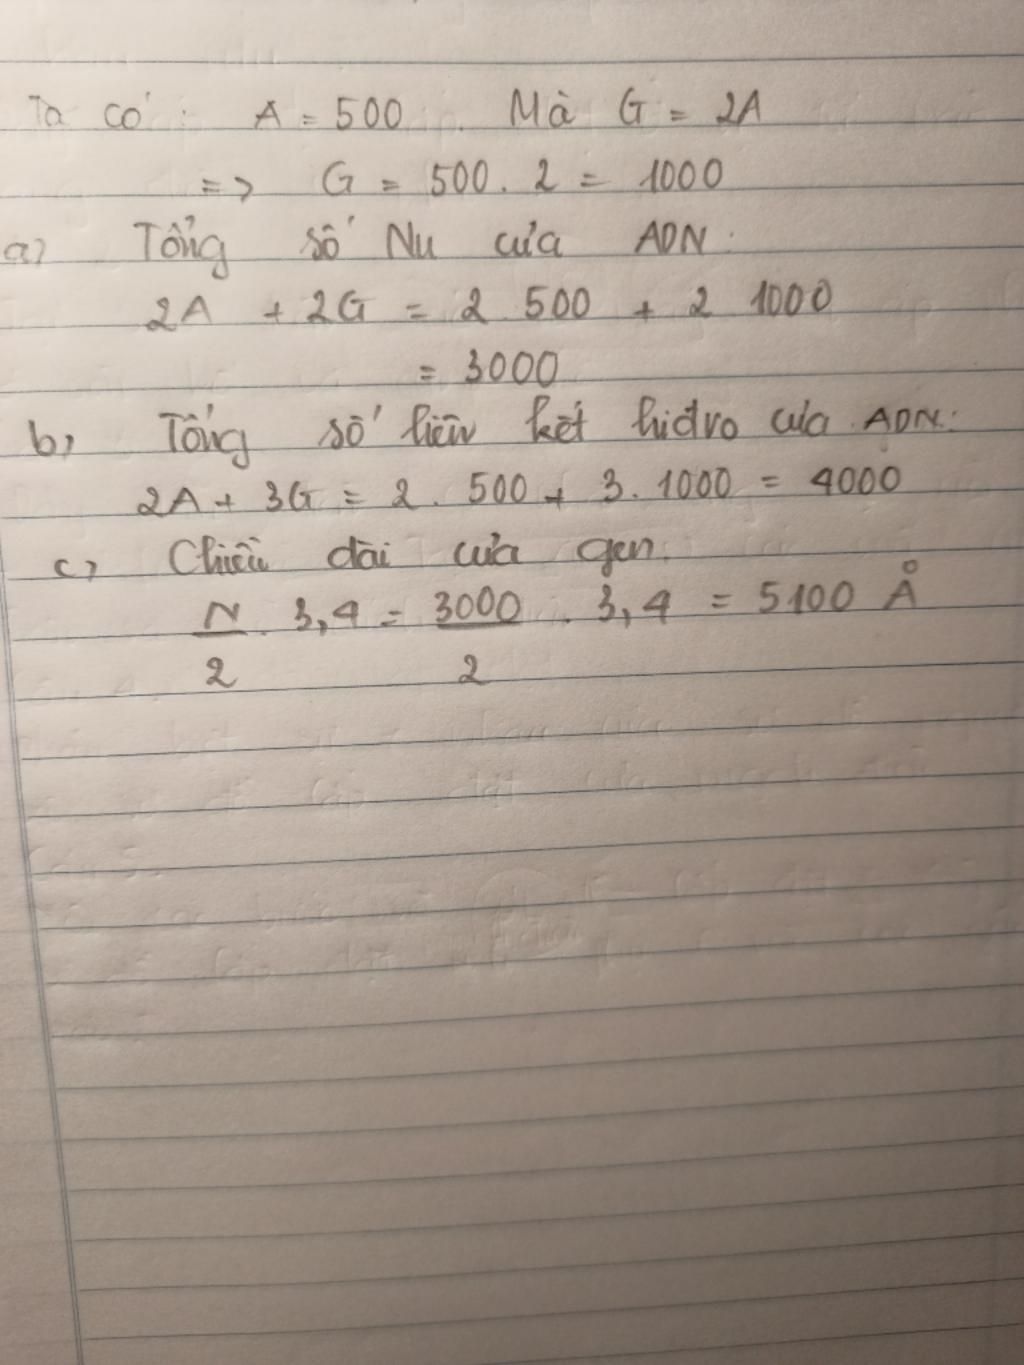 Ta có: A = 500. Mà G = 2A
=> G = 500. 2 = 1000
a) Tổng số Nu của ADN:
2A + 2G = 2 500 + 2 1000
= 3000
b) Tổng số liên kết hiđro của ADN:
2A + 3G = 2. 500 + 3. 1000 = 4000
c) Chiều dài của gen:
N/2 . 3,4 = 3000/2 . 3,4 = 5100 Å